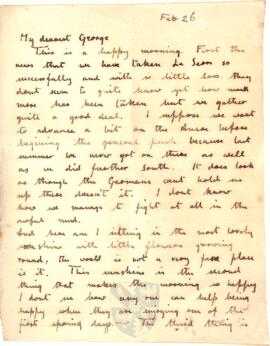 Feb 26
My dearest George
This is a happy morning. First the
news that we have taken Le Sars so
successfully and with so little loss. They
dont seem to quite know yet how much
more has been taken but we gather
quite a good deal. I suppose we want
to advance a bit on the Ancre before
beginning the general push because last
summer we never got on there as well
as we did further South. It does look
as though the Germans cant hold us
up there doesn't it. I dont know
how we manage to fight at all in the
awful mud.
And here am I sitting in the most lovely
sunshine with little flowers growing
round, the world is not a very fair place
is it. This sunshine is the second
thing that makes the morning so happy
I dont see how any one can help being
happy when they enjoying one of the
first spring days. The third thing is